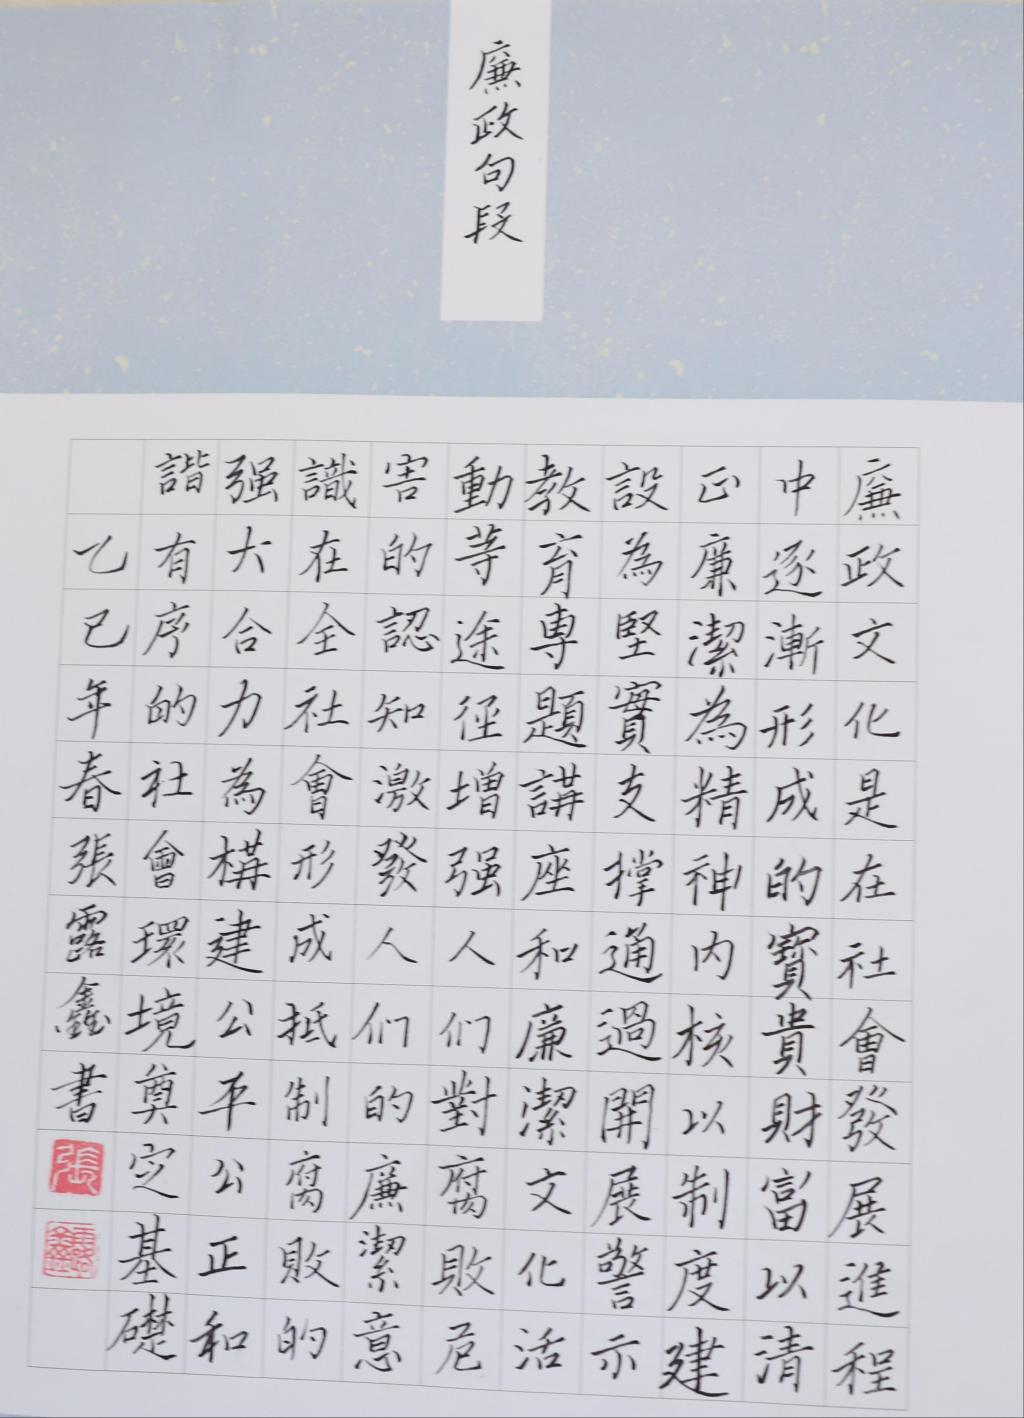 廉政句段
廉政文化是在社會發展進程
中逐漸形成的寶貴財富以清
正廉潔為精神内核以制度建
設為堅實支撐通過開展警示
教育專題講座和廉潔文化活
動等途徑增强人们對腐敗危
害的認知激發人们的廉潔意
識在全社會形成抵制腐敗的
强大合力為構建公平公正和
諧有序的社會環境奠定基礎
乙巳年春張露鑫書
張
露鑫